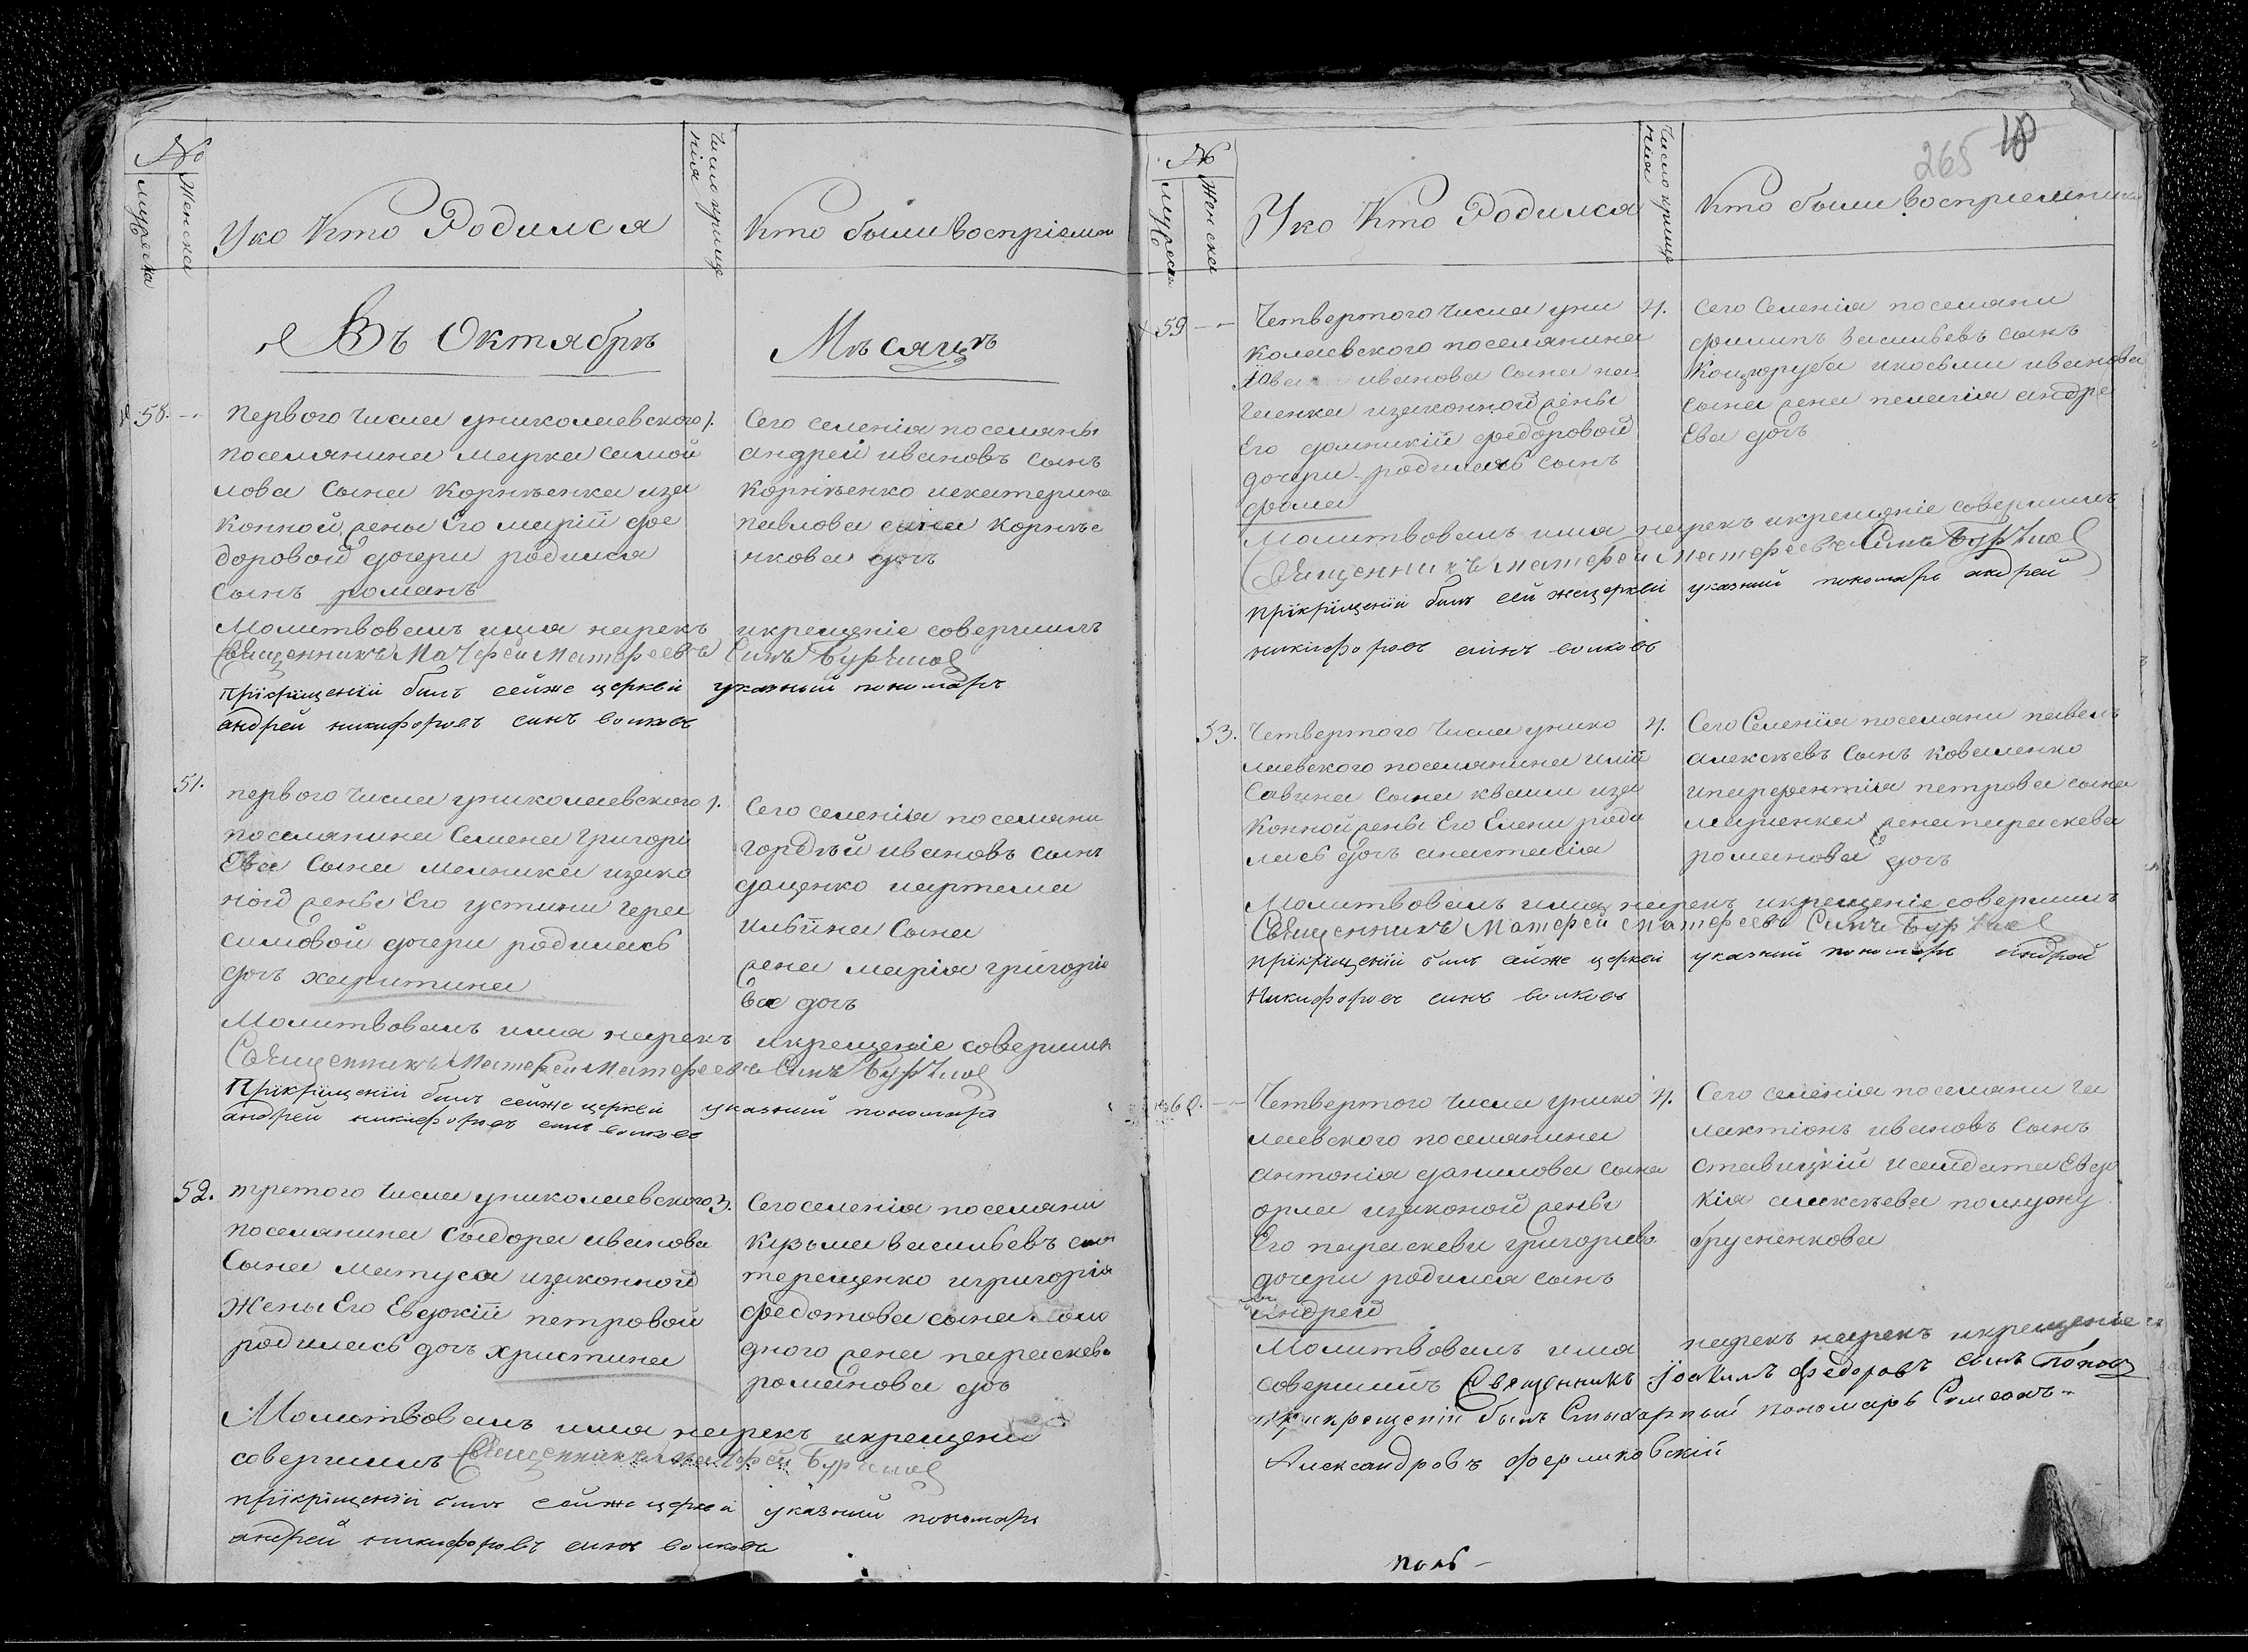 №
мужеска
женска
У кого Кто Родился
Число крище
нія
Кто были восприемн
Въ Октябрѣ
Мѣсяцѣ
58.
первого числа униколаевского
1.
поселянина марка самой
лова сына Корнѣенка иза
конной жены Его марій фе
доровой дочери родился
сынъ романъ
Сего селенія поселяны
андрей ивановъ сынъ
корнѣенко иекатерина
павлова сина корнѣе
нкова дочь
Молитвовалъ имя нарекъ икрещеніе совершилъ
Священникъ Матфей Матфеевъ Синъ
прікріщеніи билъ сейже церкви указний пономарь
андрей никифоровъ синъ волковъ
51.
первого числа униколаевского
1.
поселянина Семена григорі
Ева сына мелника изако
ной жены Его устини гера
симовой дочери родилась
дочь харитина
Сего селенія поселяни
гордѣй ивановъ сынъ
доценко иартема
ильіна сына
жена марія григоріе
ва дочь
Молитвовалъ имя нарекъ икрещеніе соверши
Священникъ Матфей Матфеевъ Синъ
Прікріщеніи билъ сейже церкви указний пономарь
андрей никифоровъ синъ волковъ
52.
третого числа униколаевского
3.
поселянина Сидора иванова
сына матуса изаконной
жены Его Евдокій петровой
родилась дочь христина
Сего селенія поселяни
кузьма васильевъ сын
терещенко игригорія
федотова сына
дного жена параскева
романова доч
Молитвовалъ имя нарекъ икрещени
совершилъ Священникъ Матфей
прікріщеніи билъ сейже церкви указний пономарь
андрей никифоровъ синъ волковъ
265
10
№
мужеска
женска
У кого Кто Родился
Число крище
нія
Кто были восприемники
59
Четвертого числа уни
4.
колаевского поселянина
иванова сына на
ленка изаконной жены
Его домникій федоровой
дочери родилась сынъ
фома
Сего Селенія поселяни
филипъ васильевъ сынъ
Коцюруба икосьми иванова
сына жена пелагія андре
Ева дочь
Молитвовалъ имя нарекъ икрещеніе совершилъ
Священникъ матфей Матфеевъ Синъ
прікріщеніи билъ сей жецеркви указний пономарь андрей
никифоровъ синъ волковъ
53.
Четвертого числа унико
4.
лаевского поселянина
Савина сына кваши иза
конной жены Его Елени роди
лась дочь анастасія
Сего Селенія поселяни павелъ
алексѣевъ сынъ коваленко
ипарфентія петрова сына
маринка жена параскева
романова дочь
Молитвовалъ имя нарекъ икрещеніе совершилъ
Священникъ Матфей Матфеевъ Синъ
прікріщеніи билъ сейже церкви указний пономарь андрей
Никифоровъ синъ волковъ
60.
Четвертого числа унико
4.
лаевского поселянина
антонія данилова сына
орла изаконой жены
Его параскеви григориево
дочери родился сынъ
андрей
Сего селенія поселяни га
лактіонъ ивановъ сынъ
ставицкій исалдата Евдо
кія алексѣева помужу
брусненкова
Молитвовалъ имя нарекъ нарекъ икрещеніе
совершилъ Священникъ Іоакимъ федоровъ сынъ Попов
прикрещеніи былъ Стихарный пономарь Симеонъ
Александровъ